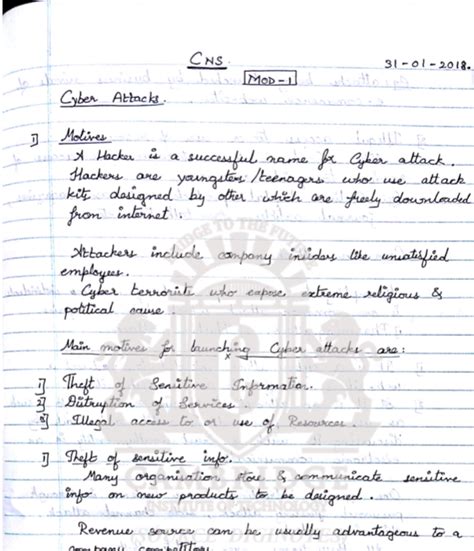 CNS
31-01-2018.
MOD-1
Cyber Attacks.
1] Motives
A Hacker is a successful name for Cyber attack.
Hackers are youngsters/teenagers who use attack
kits designed by other which are freely downloaded
from internet
Attackers include company insiders like unsatisfied
employees.
Cyber terrorists who expose extreme religious &
political cause.
Main motives for launching Cyber attacks are:
1] Theft of Sensitive Information.
2] Distruption of Services.
3] Illegal access to or use of Resources.
1] Theft of sensitive info.
Many organisation store & communicate sensitive
info on new products to be designed.
Revenue source can be usually advantageous to a
company competitors
INSTITUTE OF TECHNOLOGY